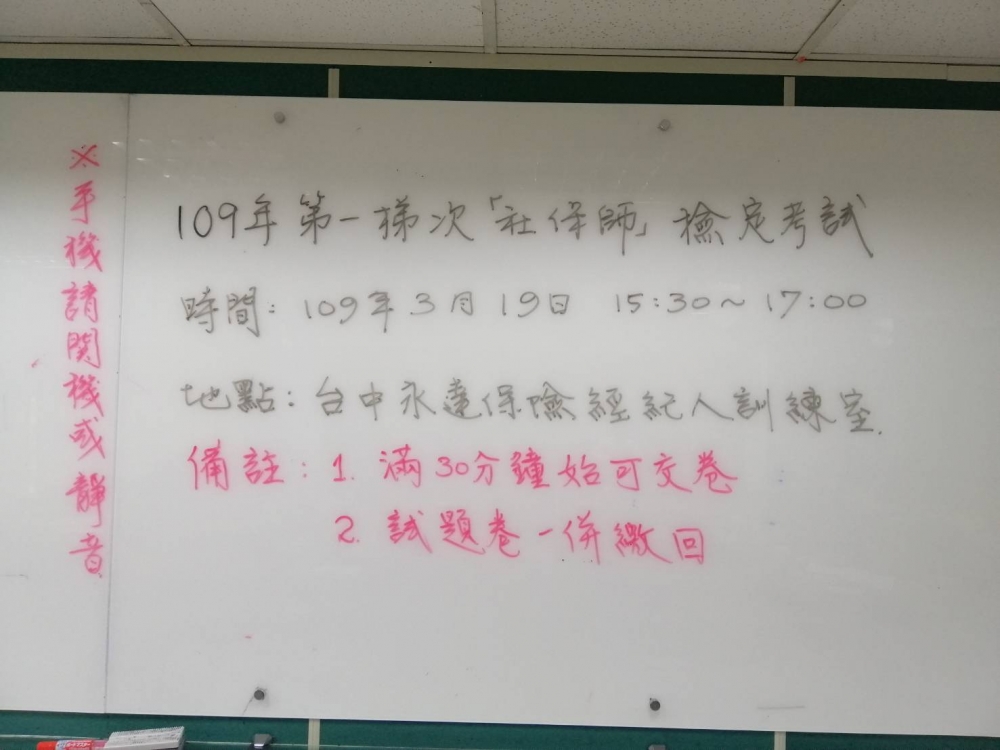 109年第一梯次「社保師」檢定考試
時間：109年3月19日 15:30～17:00
地點：台中永達保險經紀人訓練室.
備註：1. 滿30分鐘始可交卷
2. 試題卷一併繳回
※手機請関機或靜音